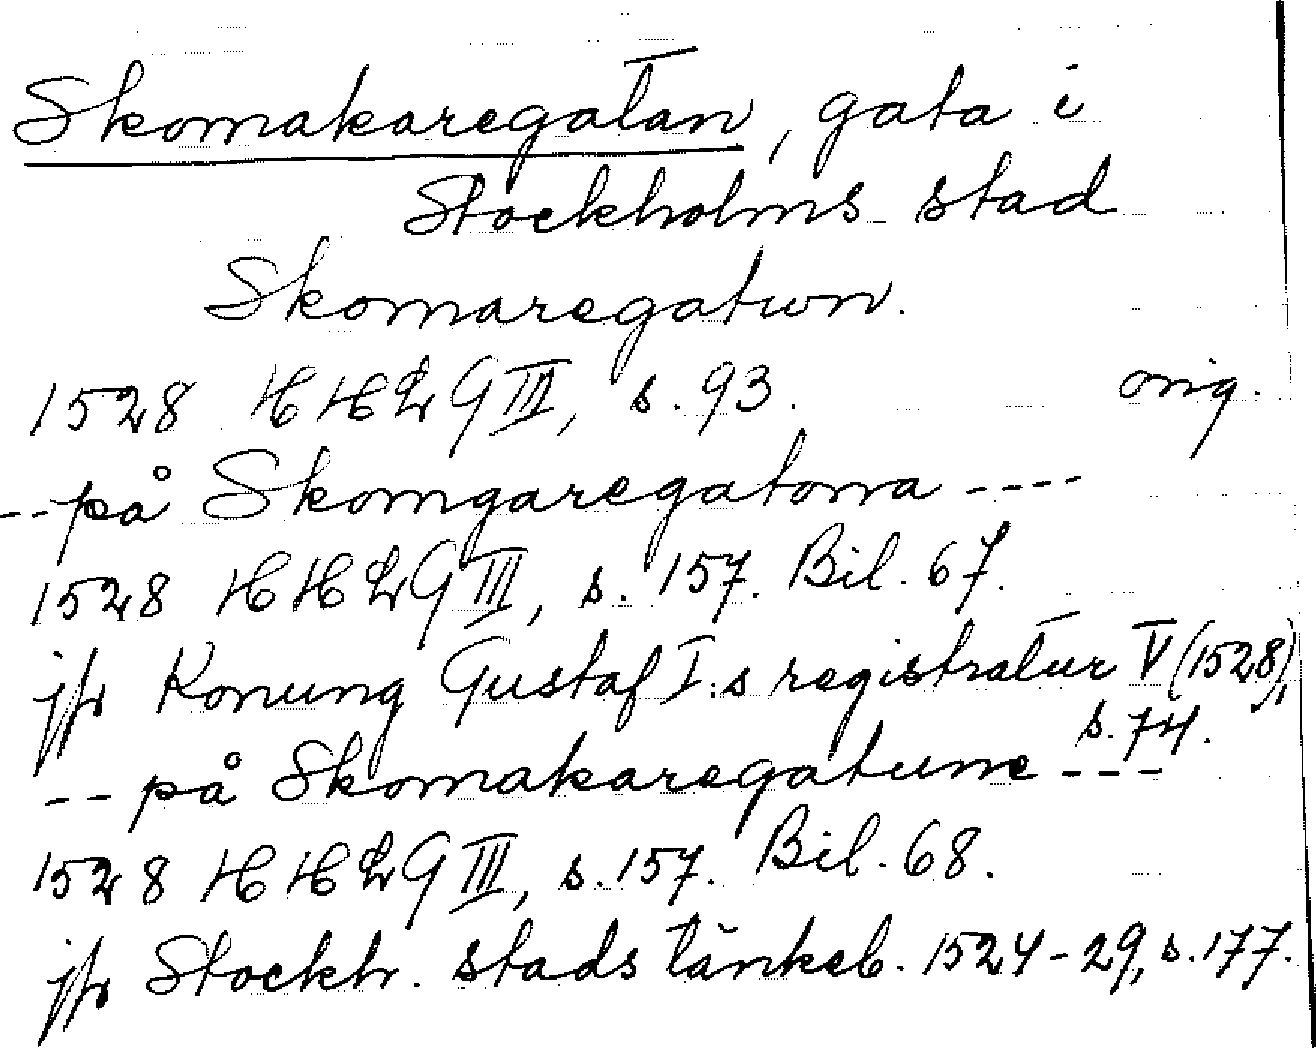 Skomakaregatan, gata i
Stockholms stad
Skomaregatwn.
1528 HHLG III, s. 93. orig.
-- på Skomgaregatonra ----
1528 HHLG III, s. 157. Bil. 67.
jfr Konung Gustaf I:s registratur V (1528),
s. 74.
-- på Skomakaregatune ---
1528 HHLG III, s. 157. Bil. 68.
jfr Stockh. stads tänkeb. 1524-29, s. 177.